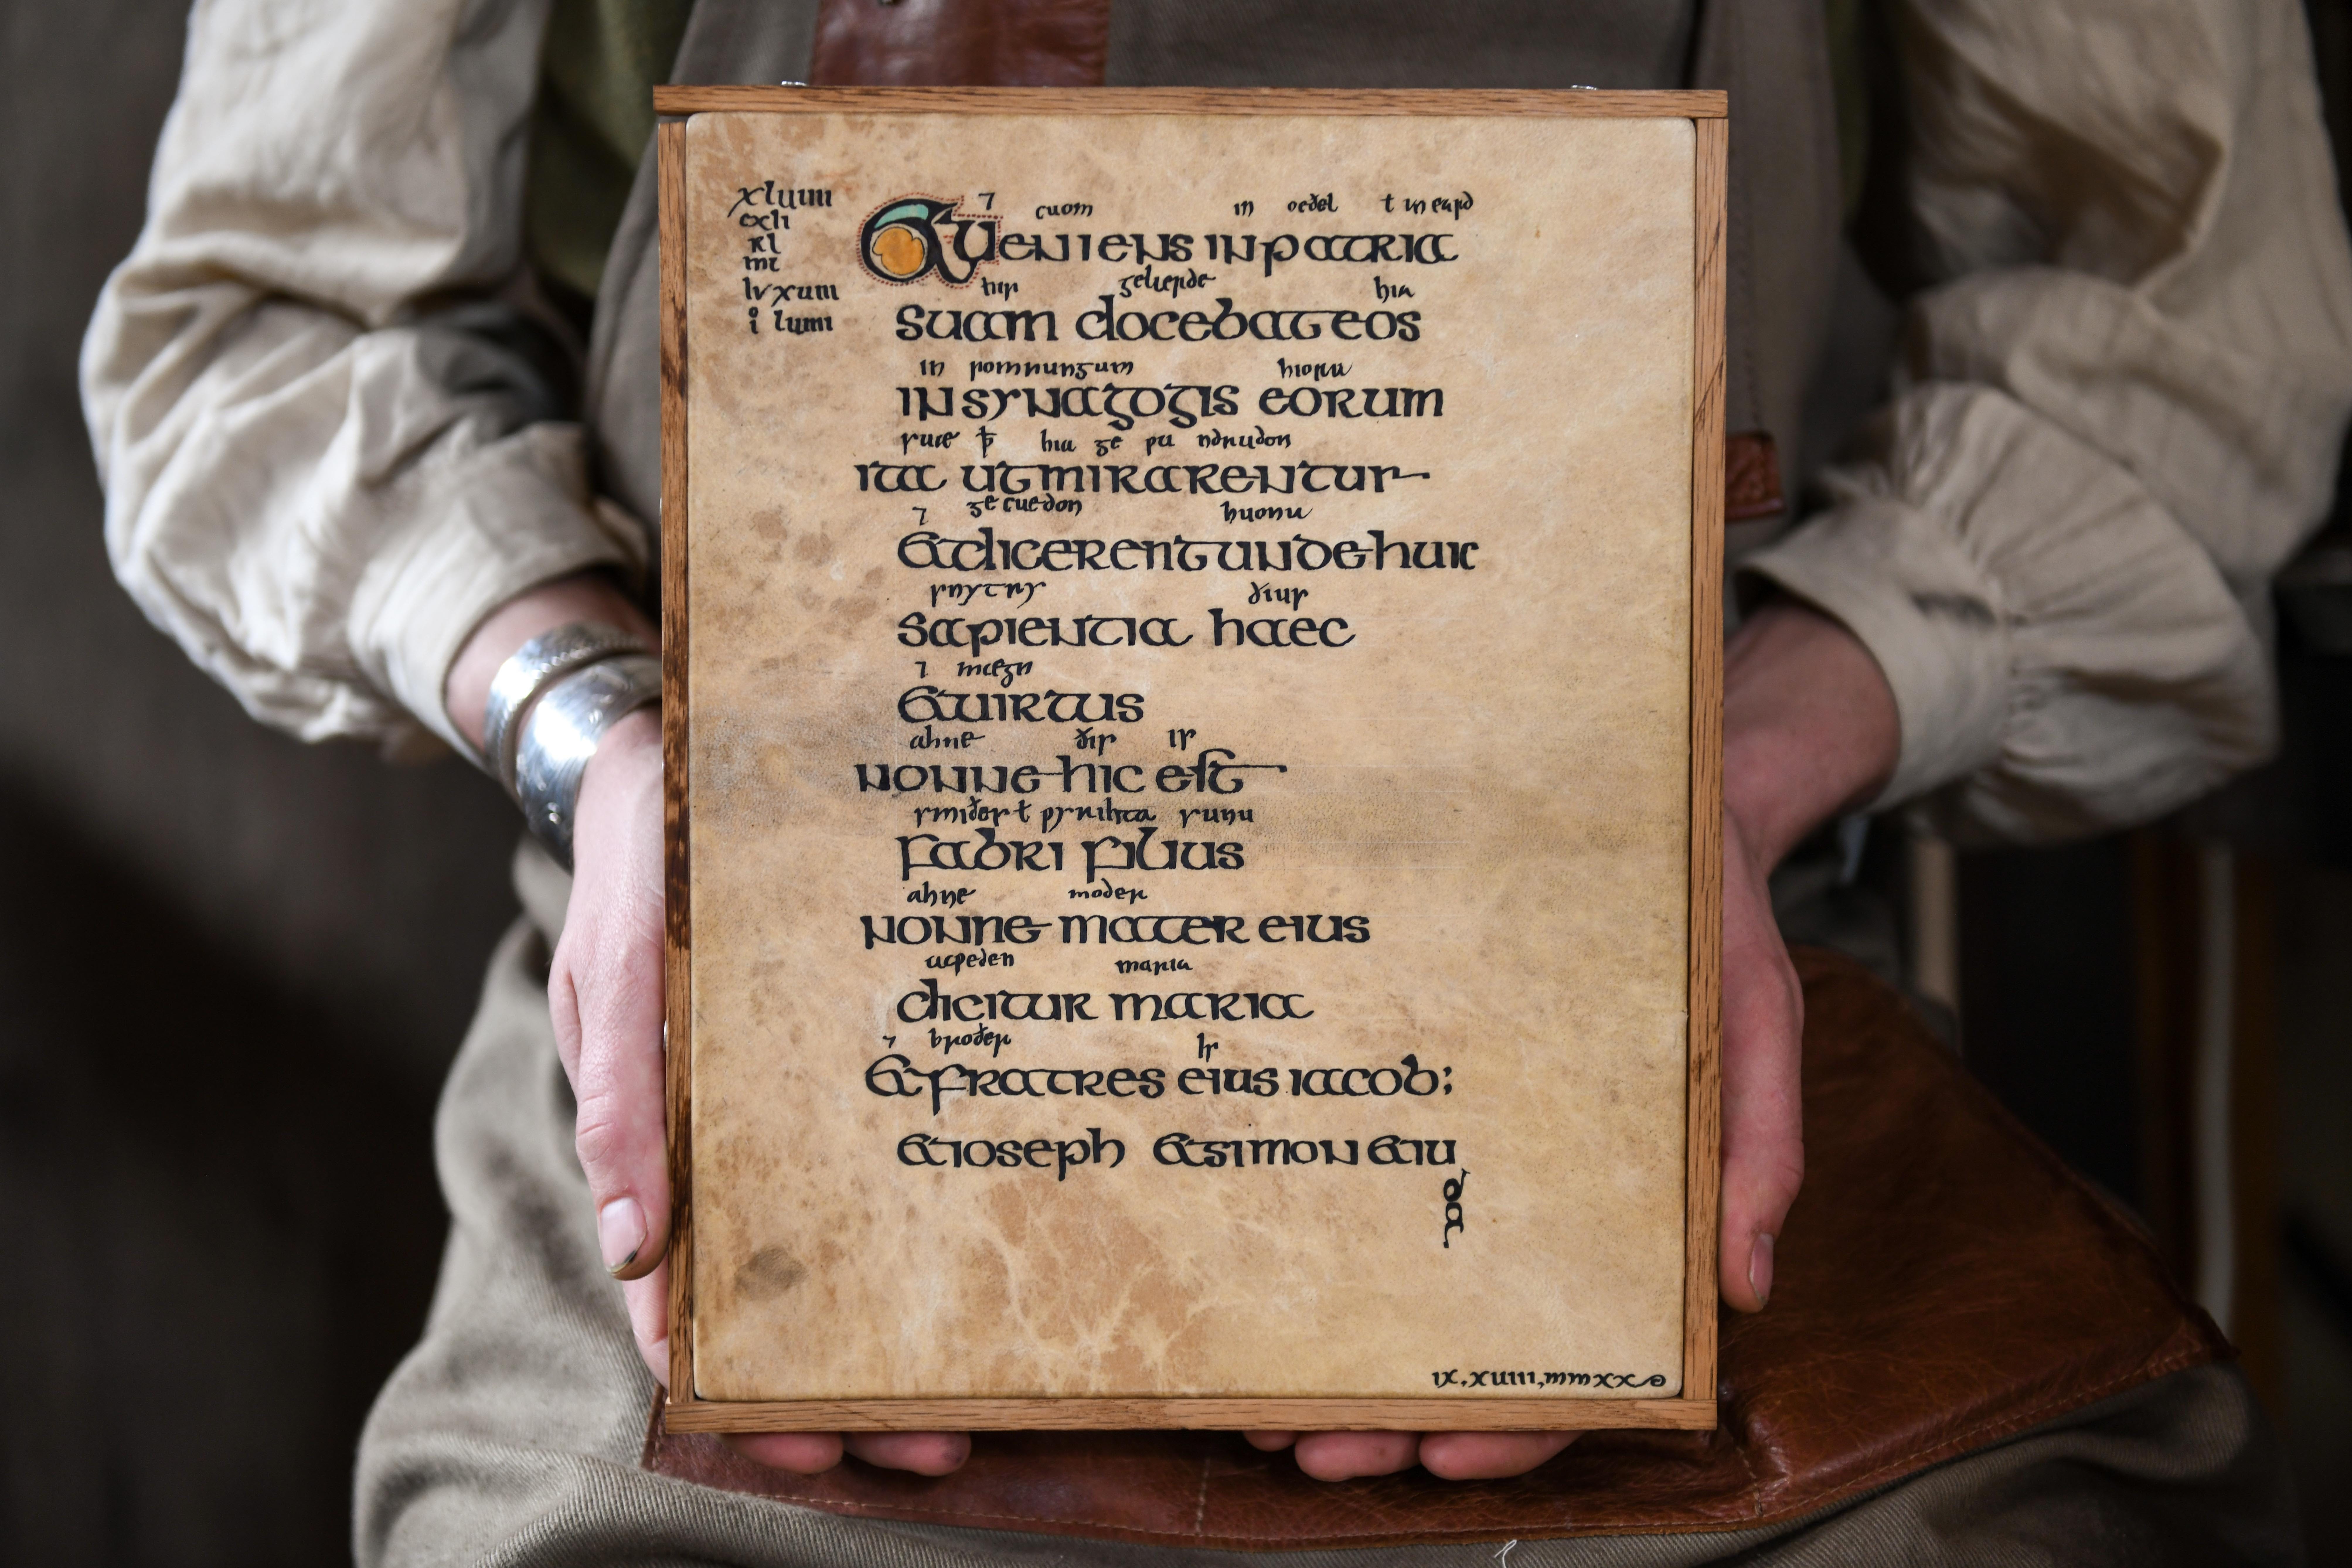 xluiiii
cxli
kl
mt
lvxuiii
i luiiii
⁊ cuom in oeðel ł in eard
Et ueniens in patria
his gelærde hia
suam docebat eos
in somnungum hiora
in synagogis eorum
suæ ꝥ hia ge undrudon
ita ut mirarentur
⁊ gecuedon huona
et dicerent unde huic
snytry ðius
sapientia haec
⁊ mægn
et uirtus
ahne ðis is
nonne hic est
smiðes ł pyrihta sunu
fabri filius
ahne moder
nonne mater eius
acpeden maria
dicitur maria
⁊ broðer is
et fratres eius iacob;
et ioseph et simon et iu
da